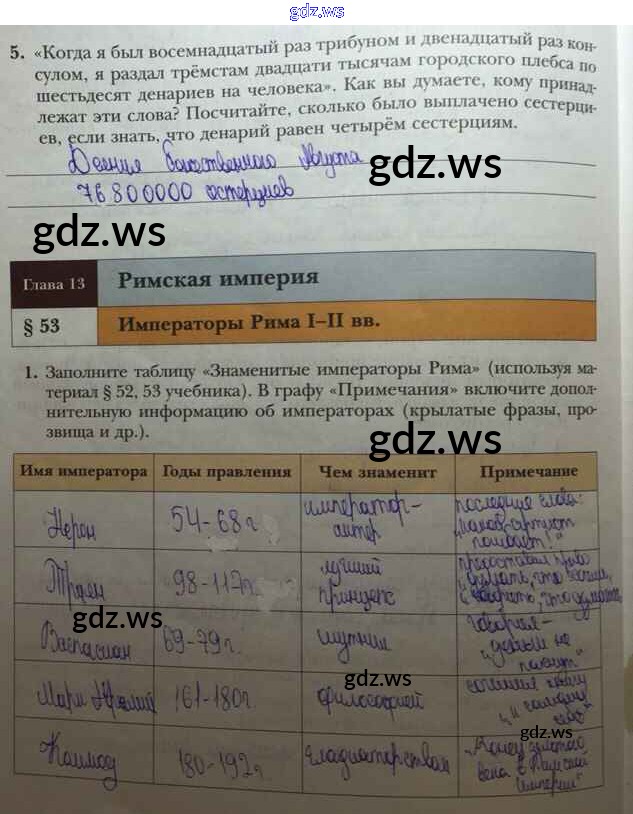 gdz.ws
5. «Когда я был восемнадцатый раз трибуном и двенадцатый раз кон-
сулом, я раздал трёмстам двадцати тысячам городского плебса по
шестьдесят денариев на человека». Как вы думаете, кому принад-
лежат эти слова? Посчитайте, сколько было выплачено сестерци-
ев, если знать, что денарий равен четырём сестерциям.
Деяния божественного Августа
gdz.ws
76800000 сестерциев
gdz.ws
Глава 13 Римская империя
§ 53 Императоры Рима I–II вв.
1. Заполните таблицу «Знаменитые императоры Рима» (используя ма-
териал § 52, 53 учебника). В графу «Примечания» включите допол-
нительную информацию об императорах (крылатые фразы, про-
звища и др.).
gdz.ws
Имя императора Годы правления Чем знаменит Примечание
Нерон 54-68г. император-
актер
последние слова:
"какой артист
погибает!"
Траян 98-117г. лучший
принцепс
предоставил право
"думать, что хотим,
и говорить, что думаем"
gdz.ws
Веспасиан 69-79г. шутник
говорил-
"деньги не
пахнут"
Марк Аврелий 161-180г. философией
gdz.ws
сочинил книгу
"К самому
себе"
gdz.ws
Коммод 180-192г. гладиаторством
"Конец золотого
века в Римской
Империи"
gdz.ws